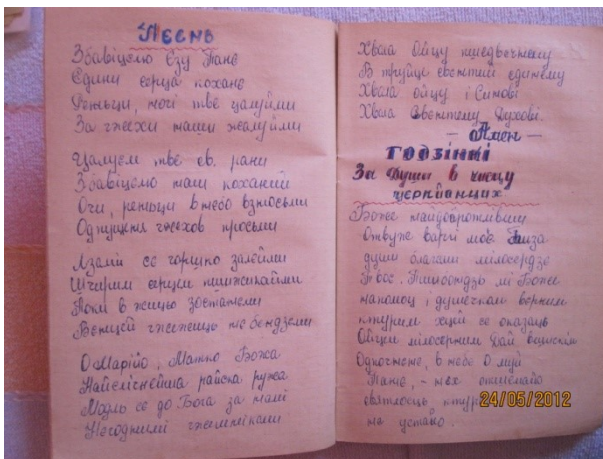 Песнь
Збавіцелю Єзу Пане
Едини серца кохане
Реньци, ногі тве цалуйми
За гжехи наши жалуйми
Цалуем тве св. рани
Збавіцелю наш коханий
Очи, реньци в небо взносьми
Одпущеня гжехов просьми
Лзами се горшко залейми
Щчерим серцем
Поки в жицю зостанеми
Венцей гжешиць не бендземи
О Марійо, Матко Божа
Найслічнейша райска ружа
Модль се до Бога за намі
Негоднимі гжешнікамі
Хвала Ойцу пшедвечнему
В труйце свентий єдинему
Хвала ойцу і Синові
Хвала Свентему Духові.
— Амен —
ГОДЗІНКІ
За Души в чисцу
черпйонцих
Боже найдобротлівши
Отвуж варгі мое. Нєха
души благаєм мілосердзе
Твоє. Боже
на помоц і душечкам верним
ктурим хцей се оказаць
Ойцем мілосерним Дай вєчисьти
Одпочинєк, в небе О муй
Панє, - нєх
святлосць ктур
не устанє.
24/05/2012